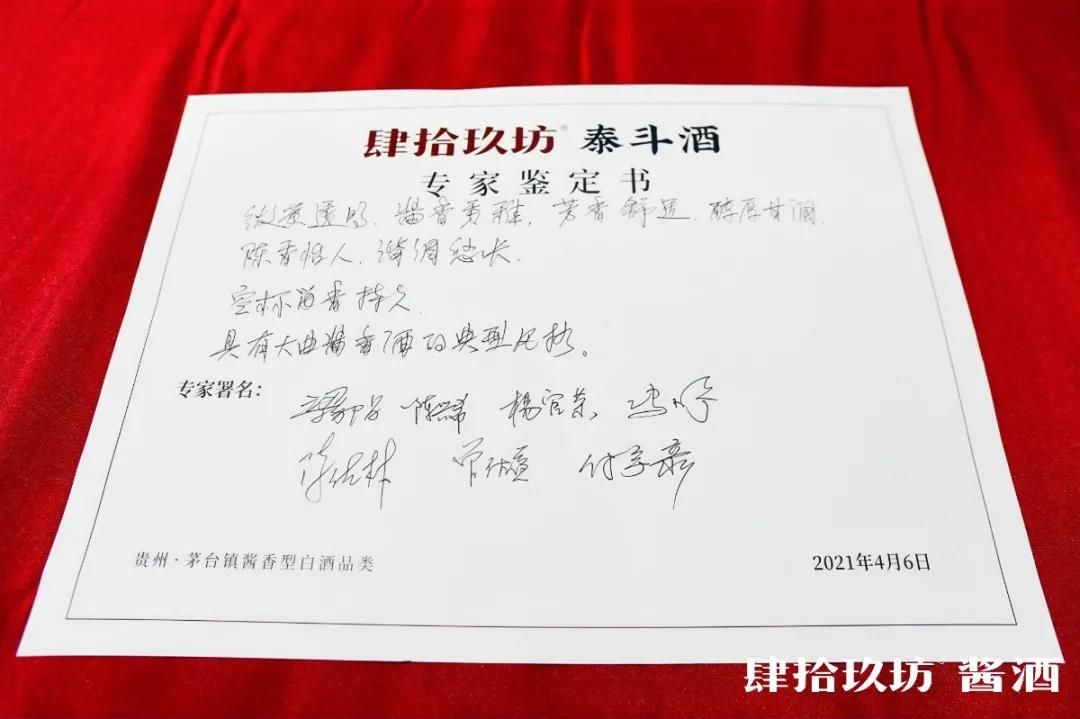 肆拾玖坊® 泰斗酒
专家鉴定书
微黄透明、酱香秀雅、芳香舒适、醇厚甘润、
陈香怡人、绵绸悠长、
空杯留香持久、
具有大曲酱香酒的典型风格。
专家署名：
陈兴希 杨官荣
贵州·茅台镇酱香型白酒品类
2021年4月6日
肆拾玖坊® 酱酒